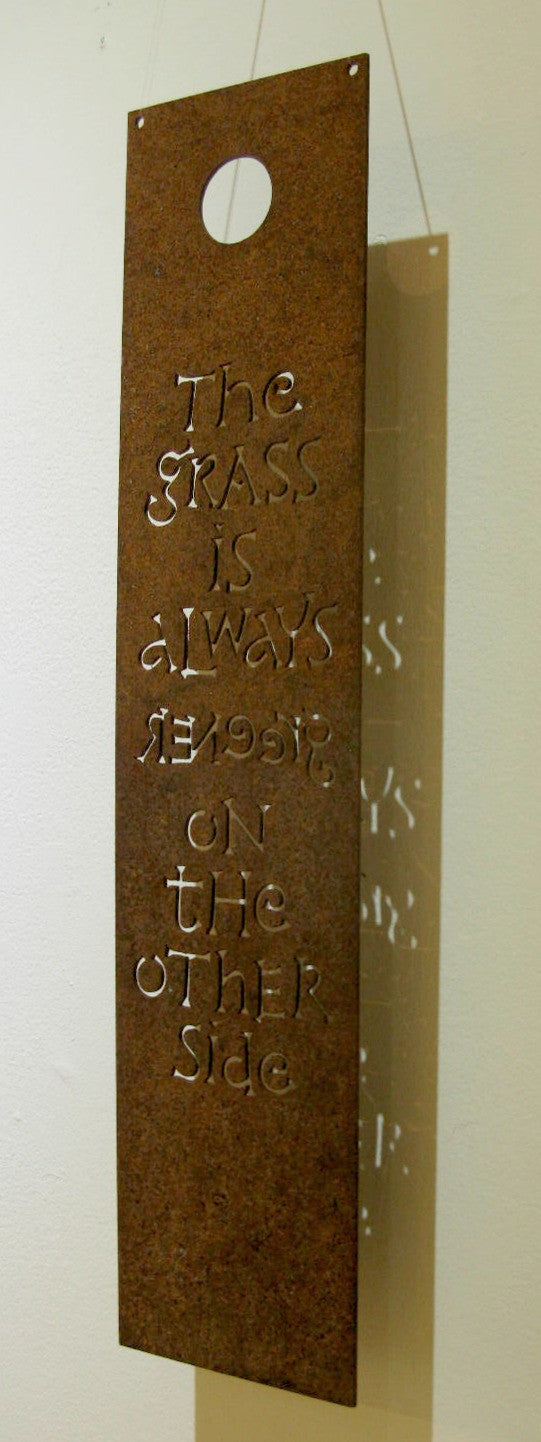 The
gRASS
is
aLwaYS
greeNER
ON
tHe
OTHER
Side